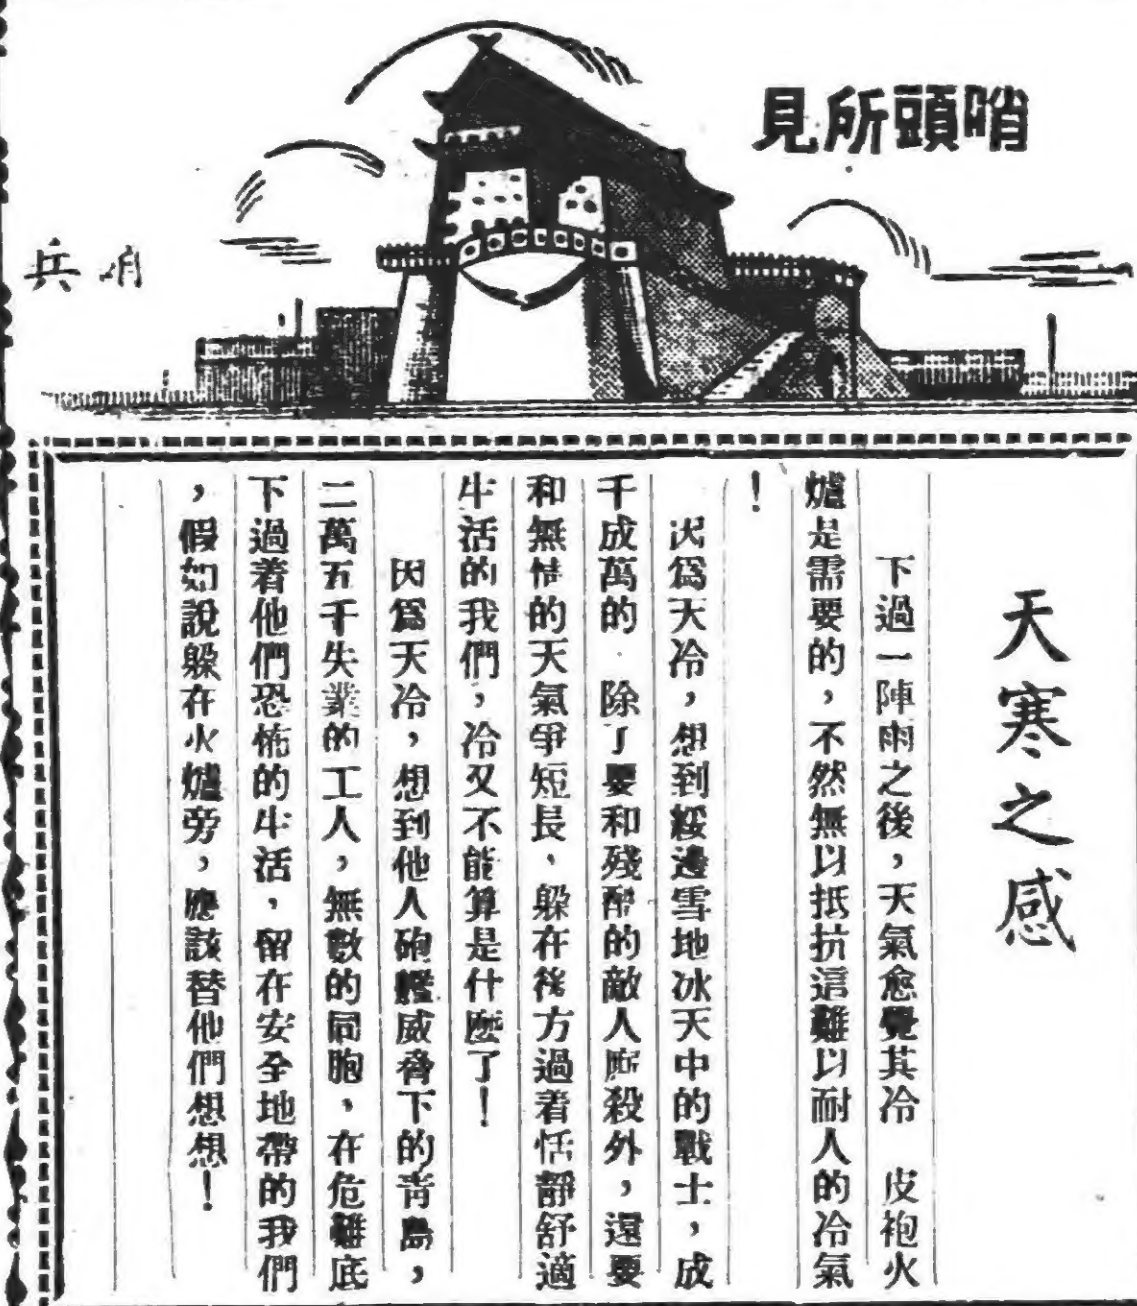 哨頭所見
哨兵
天寒之感
下過一陣雨之後，天氣愈覺其冷　皮袍火
爐是需要的，不然無以抵抗這難以耐人的冷氣
！
因爲天冷，想到綏邊雪地冰天中的戰士，成
千成萬的　除了要和殘酷的敵人廝殺外，還要
和無情的天氣爭短長，躲在後方過着恬靜舒適
生活的我們，冷又不能算是什麼了！
因爲天冷，想到他人砲艦威脅下的青島，
二萬五千失業的工人，無數的同胞，在危難底
下過着他們恐怖的生活，留在安全地帶的我們
，假如說躲在火爐旁，應該替他們想想！